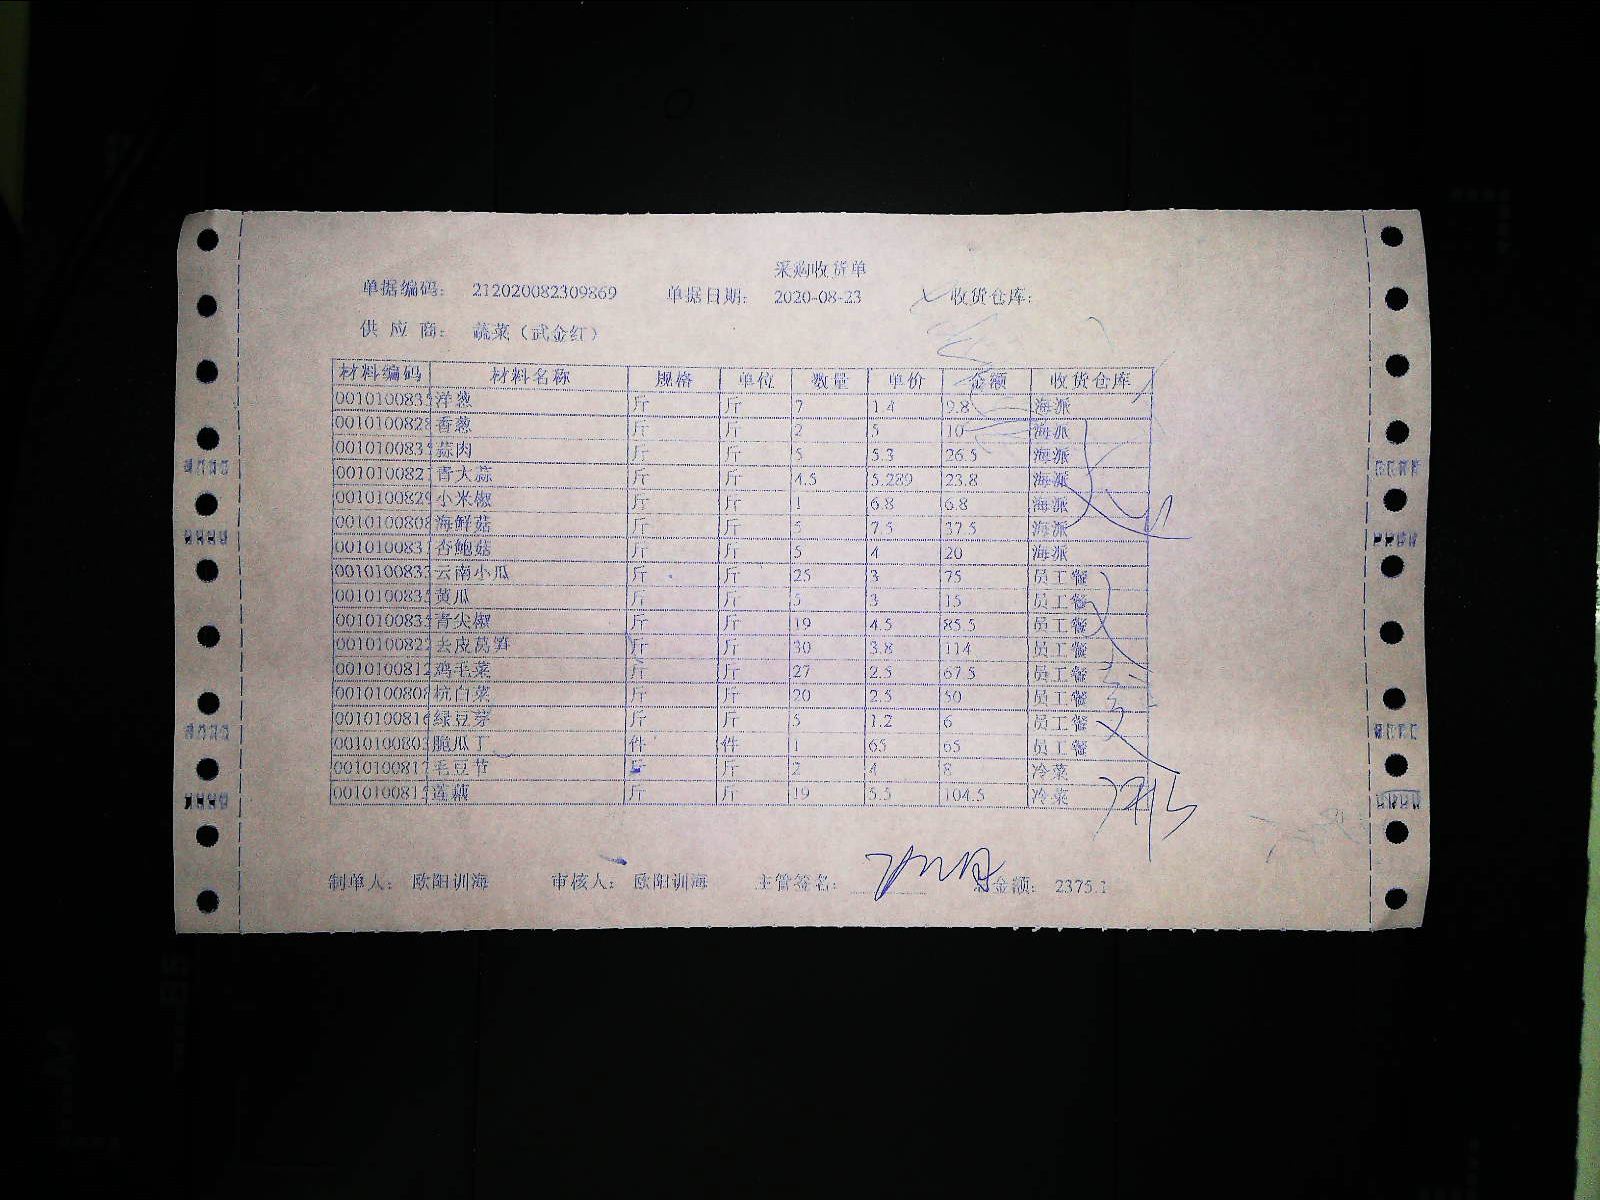 采购收货单
单据编码: 212020082309869 单据日期: 2020-08-23 收货仓库:
供 应 商: 蔬菜(武金红)
材料编码 材料名称 规格 单位 数量 单价 金额 收货仓库
0010100835 洋葱 斤 斤 7 1.4 9.8 海派
0010100828 香葱 斤 斤 2 5 10 海派
001010083 蒜肉 斤 斤 5 5.3 26.5 海派
001010082 青大蒜 斤 斤 4.5 5.289 23.8 海派
0010100829 小米椒 斤 斤 1 6.8 6.8 海派
0010100808 海鲜菇 斤 斤 5 7.5 37.5 海派
001010083 杏鲍菇 斤 斤 5 4 20 海派
001010083 云南小瓜 斤 斤 25 3 75 员工餐
001010083 黄瓜 斤 斤 5 3 15 员工餐
001010083 青尖椒 斤 斤 19 4.5 85.5 员工餐
001010082 去皮莴笋 斤 斤 30 3.8 114 员工餐
001010081 鸡毛菜 斤 斤 27 2.5 67.5 员工餐
001010080 杭白菜 斤 斤 20 2.5 50 员工餐
0010100816 绿豆芽 斤 斤 5 1.2 6 员工餐
001010080 脆瓜丁 件 件 1 65 65 员工餐
001010081 毛豆节 斤 斤 2 4 8 冷菜
001010081 莲藕 斤 斤 19 5.5 104.5 冷菜
制单人: 欧阳训海 审核人: 欧阳训海 主管签名: 总金额: 2375.1